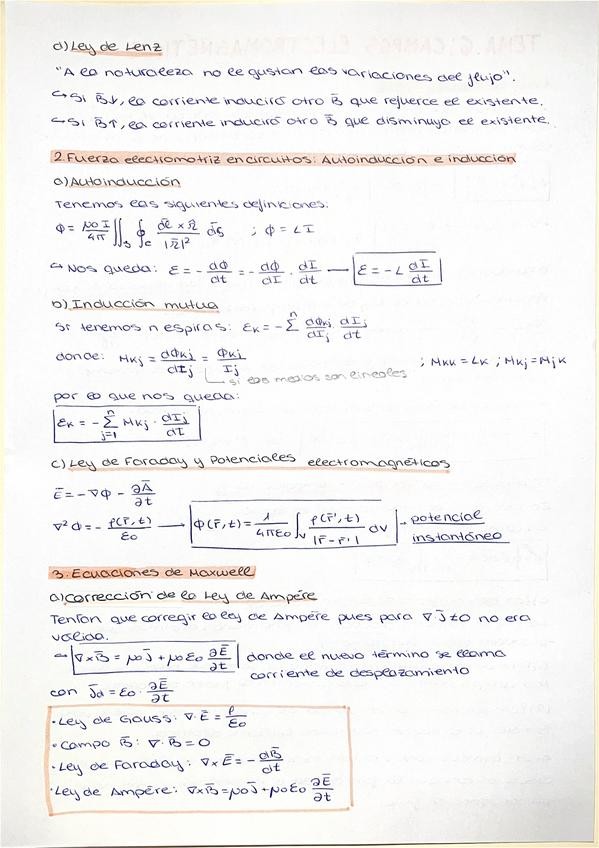 d) Ley de Lenz
"A la naturaleza no le gustan las variaciones del flujo".
↳ Si B̄↓, la corriente inducirá otro B̄ que refuerce el existente.
↳ Si B̄↑, la corriente inducirá otro B̄ que disminuya el existente.
2. Fuerza electromotriz en circuitos: Autoinducción e inducción
a) Autoinducción
Tenemos las siguientes definiciones:
Φ = μ0 I / 4π ∬_S ∮_C (dl̄ × r̄ / |r̄|²) ds̄ ; Φ = LI
↳ Nos queda: ε = - dΦ/dt = - dΦ/dI · dI/dt → ε = -L dI/dt
b) Inducción mutua
Si tenemos n espiras: εk = - Σ^n dΦkj/dIj dIj/dt
donde: Mkj = dΦkj/dIj = Φkj/Ij ; Mkk = Lk ; Mkj = Mjk
si los medios son lineales
por lo que nos queda:
εk = - Σ_{j=1}^n Mkj · dIj/dt
c) Ley de Faraday y Potenciales electromagnéticos
Ē = -∇Φ - ∂Ā/∂t
∇²Φ = - ρ(r̄,t)/ε0 → Φ(r̄,t) = 1/4πε0 ∫_V ρ(r̄',t)/|r̄ - r̄'| dv → potencial
instantáneo
3. Ecuaciones de Maxwell
a) Corrección de la Ley de Ampére
Tenían que corregir la ley de Ampére pues para ∇·J̄≠0 no era
válida.
→ ∇×B̄ = μ0 J̄ + μ0 ε0 ∂Ē/∂t donde el nuevo término se llama
corriente de desplazamiento
con J̄d = ε0 · ∂Ē/∂t
· Ley de Gauss: ∇·Ē = ρ/ε0
· Campo B̄: ∇·B̄ = 0
· Ley de Faraday: ∇×Ē = - dB̄/dt
· Ley de Ampére: ∇×B̄ = μ0 J̄ + μ0 ε0 ∂Ē/∂t